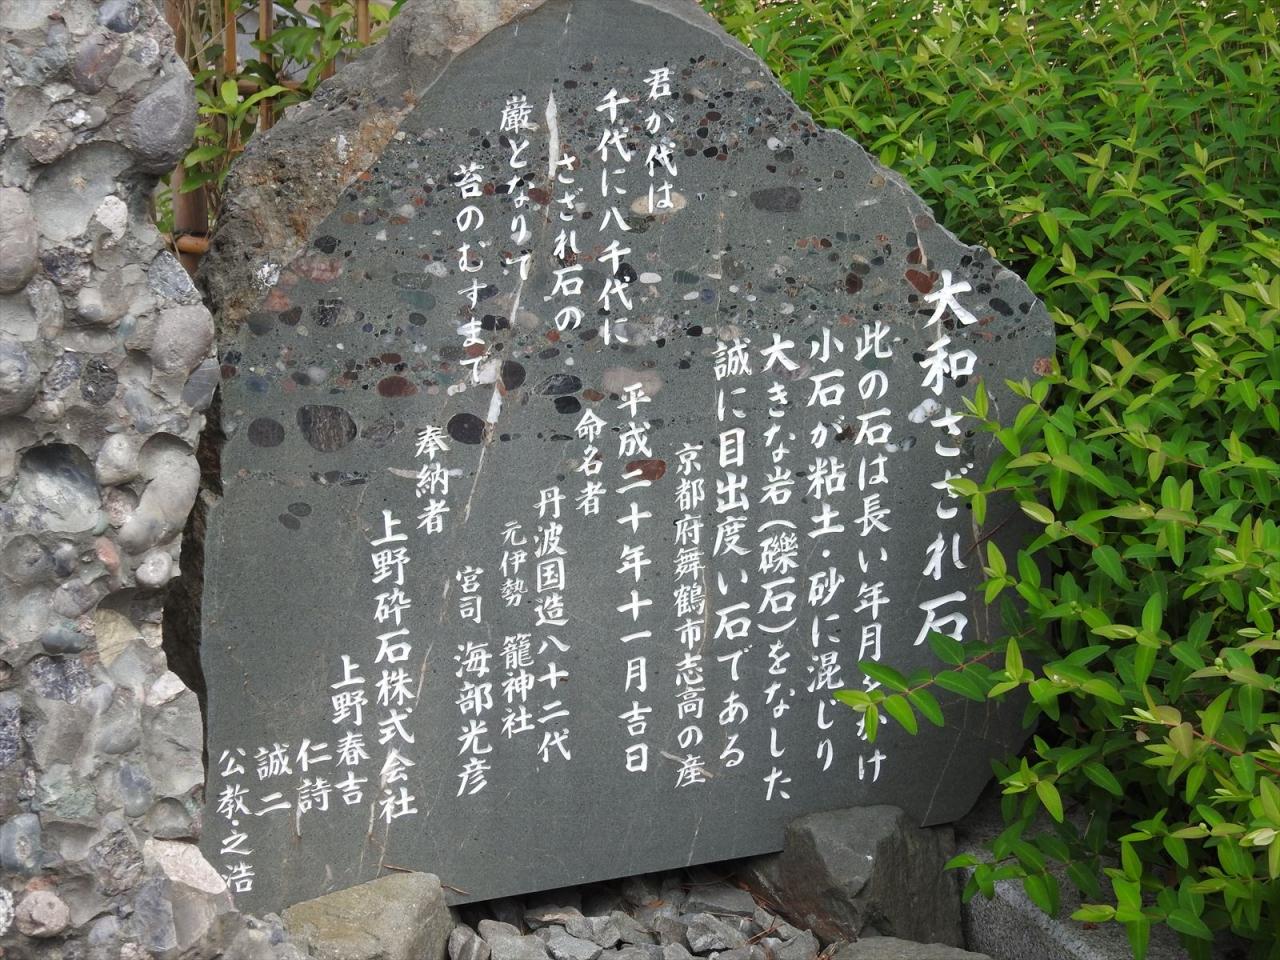 大和さざれ石
此の石は長い年月をかけ
小石が粘土・砂に混じり
大きな岩(礫石)をなした
誠に目出度い石である
京都府舞鶴市志高の産
君が代は
千代に八千代に
さざれ石の
厳となりて
苔のむすまで
平成二十年十一月吉日
命名者
丹波国造八十二代
元伊勢 籠神社
宮司 海部光彦
奉納者
上野砕石株式会社
上野春吉
仁詩
誠二
公教・之浩